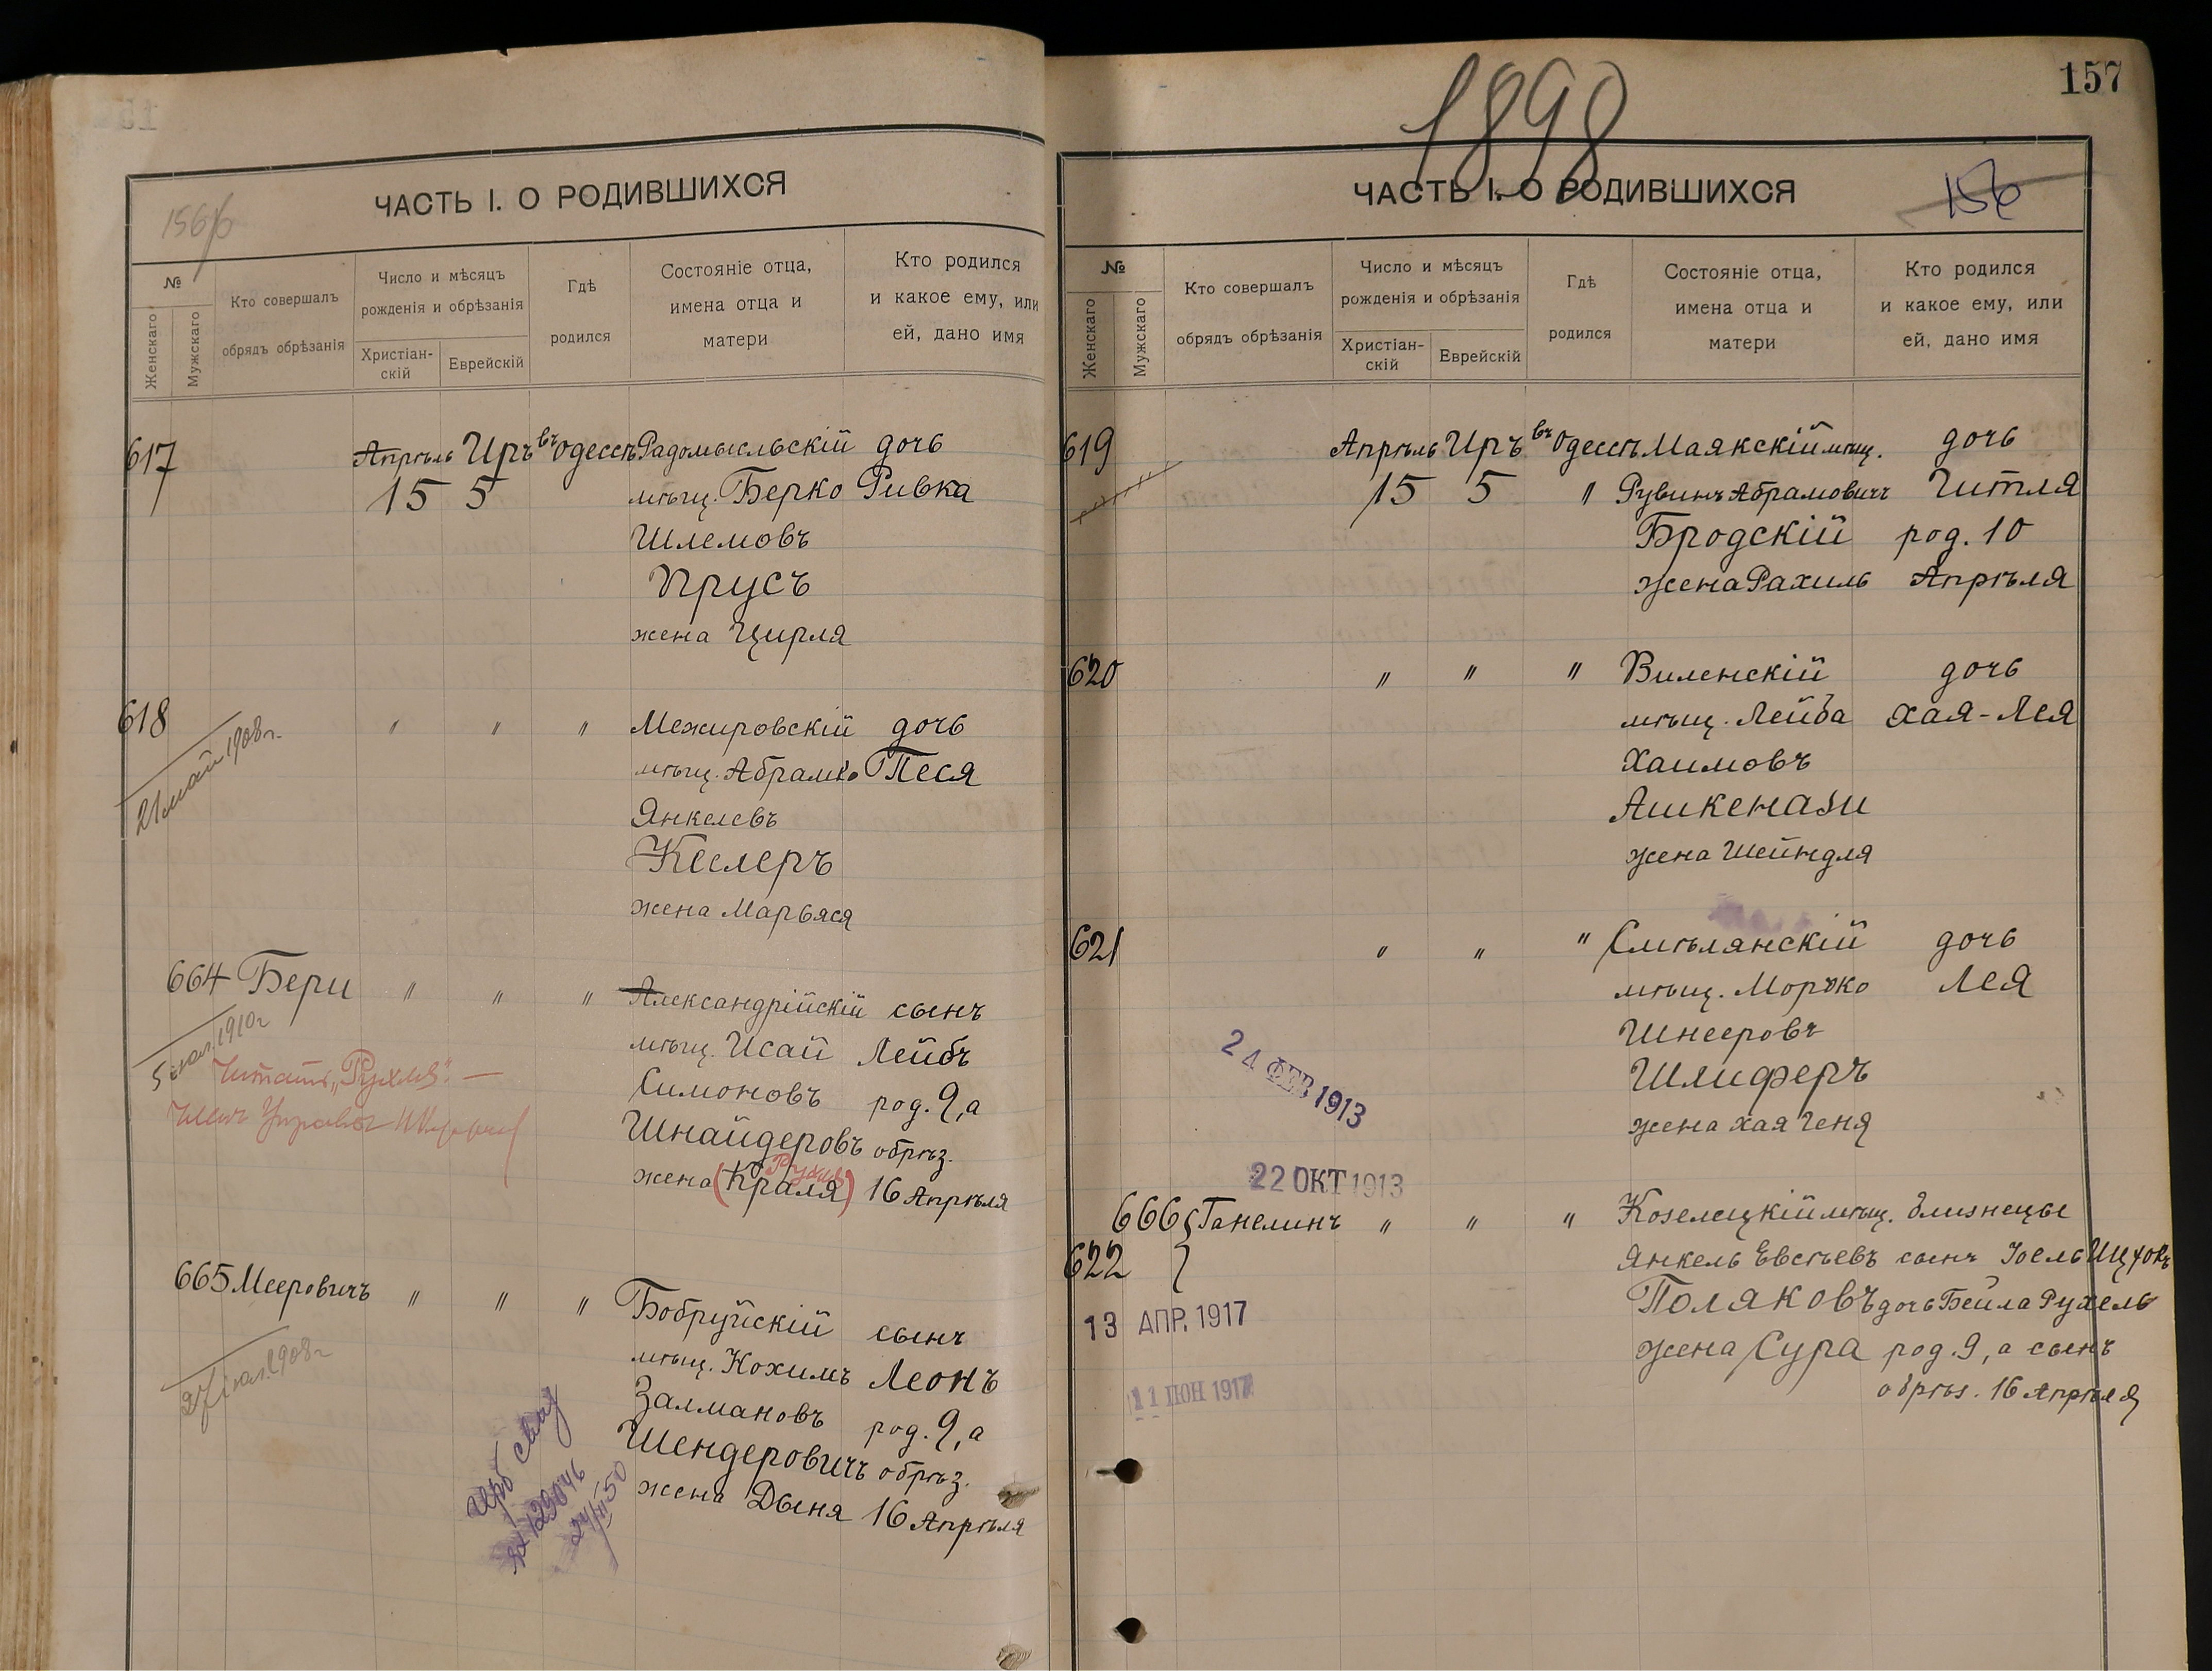 156б
ЧАСТЬ I. О РОДИВШИХСЯ
№
Женскаго
Мужскаго
Кто совершалъ
обрядъ обрѣзанія
Число и мѣсяцъ
рожденія и обрѣзанія
Христіан-
скій
Еврейскій
Гдѣ
родился
Состояніе отца,
имена отца и
матери
Кто родился
и какое ему, или
ей, дано имя
617 Апрѣль Иръ въ Одессѣ Радомысльскій дочь
15 5 мѣщ. Берко Ривка
Шлемовъ
Прусъ
жена Цирля
618 " " " Межировскій дочь
21 май 1908 г.
мѣщ. Абрамко Песя
Янкелевъ
Кеслеръ
жена Марьяся
664 Бери " " " Александрійскій сынъ
5 1910 г
мѣщ. Исай Лейбъ
Читать „Рухля". —
Симоновъ род. 9, а
Членъ Управы
Шнайдеровъ обрѣз.
Рухля
жена (Краля) 16 Апрѣля
665 Мееровичъ " " " Бобруйскій сынъ
27 1908 г
мѣщ. Нохимъ Леонъ
Залмановъ род. 9, а
Шендеровичъ обрѣз.
жена Двеня 16 Апрѣля
50
1898
157
ЧАСТЬ I. О РОДИВШИХСЯ
156
№
Женскаго
Мужскаго
Кто совершалъ
обрядъ обрѣзанія
Число и мѣсяцъ
рожденія и обрѣзанія
Христіан-
скій
Еврейскій
Гдѣ
родился
Состояніе отца,
имена отца и
матери
Кто родился
и какое ему, или
ей, дано имя
619 Апрѣль Иръ въ Одессѣ Маякскій мѣщ. дочь
15 5 " Рувинъ Абрамовичъ Гитля
Бродскій род. 10
жена Рахиль Апрѣля
620 " " " Виленскій дочь
мѣщ. Лейба Хая-Лея
Хаимовъ
Ашкенази
жена Шейндля
621 " " " Смѣлянскій дочь
мѣщ. Мордко Лея
Шнееровъ
Шлиферъ
жена Хая Геня
24 ФЕВ 1913
22 ОКТ 1913
666 Ганелинъ " " " Козелецкій мѣщ. близнецы
622 Янкель Евсѣевъ сынъ Іоель Ицхокъ
Поляковъ дочь Бейла Рухель
13 АПР. 1917
жена Сура род. 9, а сынъ
11 ІЮН 1917
обрѣз. 16 Апрѣля